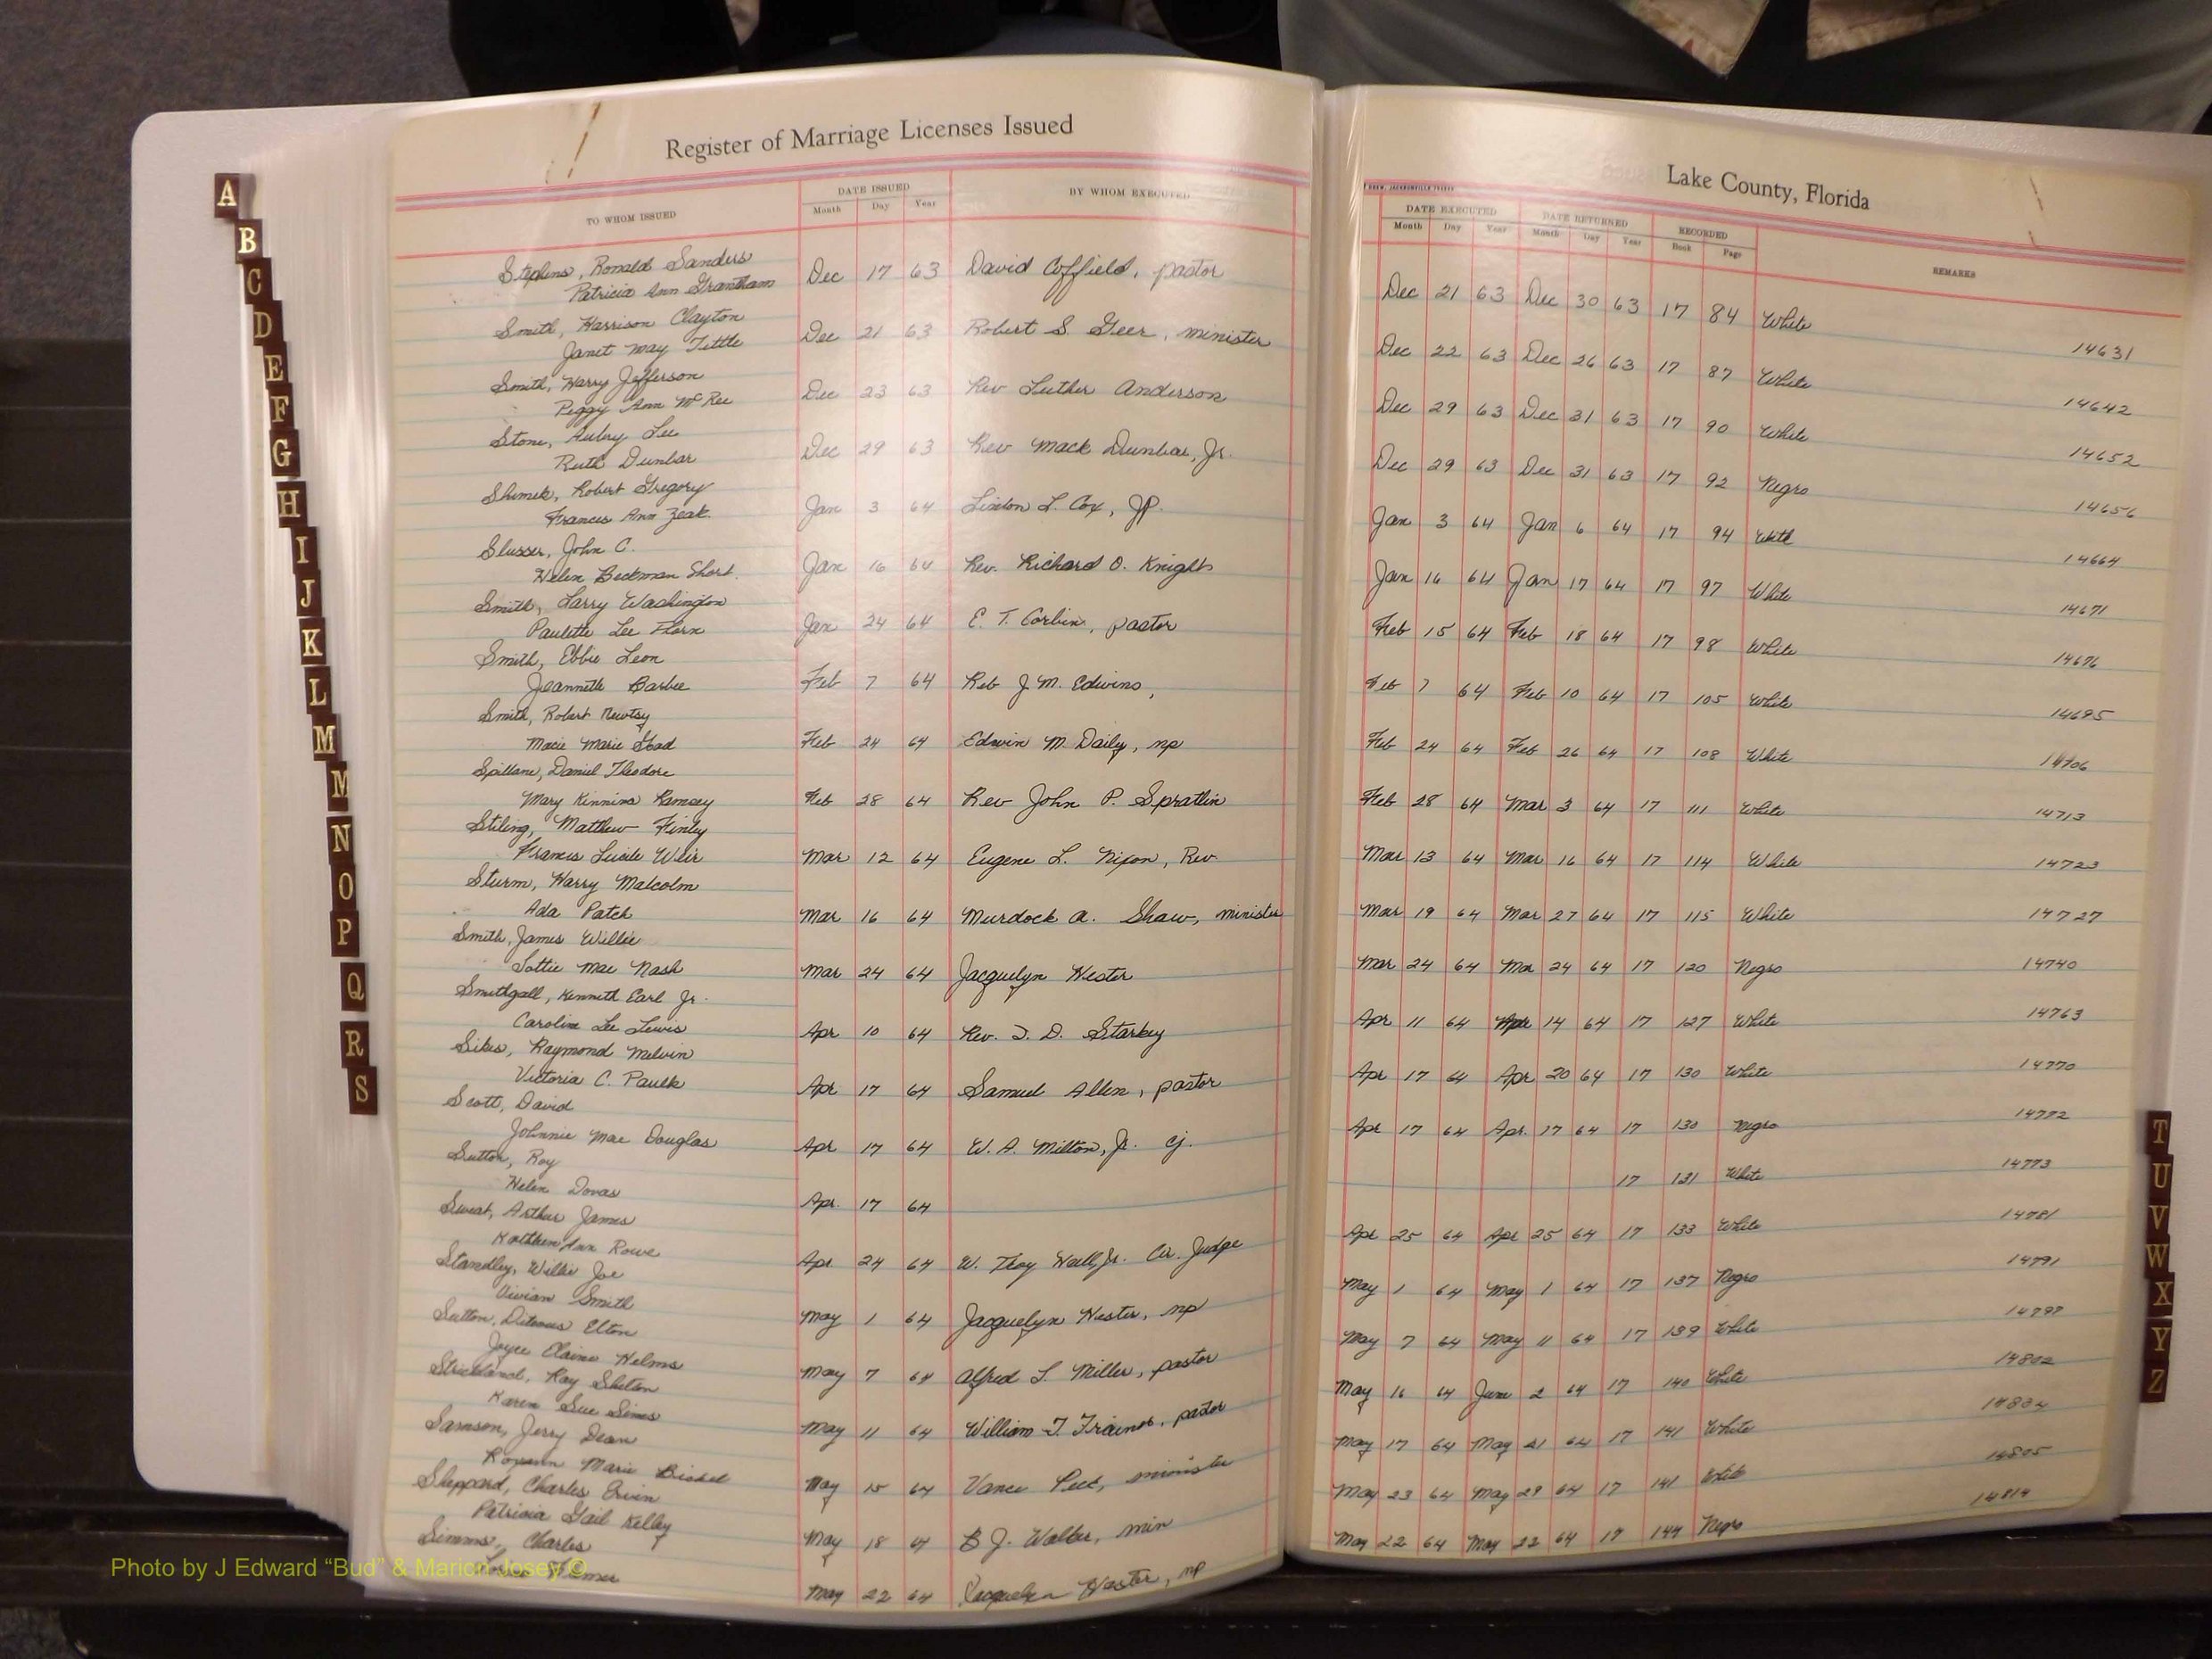 Register of Marriage Licenses Issued
Lake County, Florida
TO WHOM ISSUED
DATE ISSUED
Month Day Year
BY WHOM EXECUTED
DATE EXECUTED
Month Day Year
DATE RETURNED
Month Day Year
RECORDED
Book Page
REMARKS
Stephens, Ronald Sanders
Patricia Ann Grantham
Dec 17 63 David Coffield, pastor
Dec 21 63 Dec 30 63 17 84 White 14631
Smith, Harrison Clayton
Janet May Tittle
Dec 21 63 Robert S. Geer, minister
Dec 22 63 Dec 26 63 17 87 White 14642
Smith, Harry Jefferson
Peggy Ann McRee
Dec 23 63 Rev Luther Anderson
Dec 29 63 Dec 31 63 17 90 White 14652
Stone, Aubry Lee
Ruth Dunbar
Dec 29 63 Rev Mack Dunbar, Jr.
Dec 29 63 Dec 31 63 17 92 Negro 14656
Shimek, Robert Gregory
Frances Ann Zeak
Jan 3 64 Linton L. Cox, JP.
Jan 3 64 Jan 6 64 17 94 14664
Slusser, John C.
Helen Beckman Short.
Jan 16 64 Rev. Richard O. Knight
Jan 16 64 Jan 17 64 17 97 White 14671
Smith, Larry Washington
Paulette Lee
Jan 24 64 E. T. Corbin, pastor
Feb 15 64 Feb 18 64 17 98 White 14676
Smith, Ebbie Leon
Jeannette Barbee
Feb 7 64 Reb J. M. Edwins,
Feb 7 64 Feb 10 64 17 105 White 14695
Smith, Robert
Macie Marie
Feb 24 64 Edwin M. Daily, np
Feb 24 64 Feb 26 64 17 108 White 14706
Spillane, Daniel Theodore
Mary Kinnins Ramsey
Feb 28 64 Rev John P. Spratlin
Feb 28 64 Mar 3 64 17 111 White 14713
Stiling, Matthew Finley
Frances Lucile Weir
Mar 12 64 Eugene L. Nixon, Rev.
Mar 13 64 Mar 16 64 17 114 White 14723
Sturm, Harry Malcolm
Ada Patch
Mar 16 64 Murdock A. Shaw, minister
Mar 19 64 Mar 27 64 17 115 White 14727
Smith, James Willie
Lottie Mae Nash
Mar 24 64 Jacquelyn Hester
Mar 24 64 Mar 24 64 17 120 Negro 14740
Smithgall, Kenneth Earl Jr.
Caroline Lee Lewis
Apr 10 64 Rev. J. D. Starkey
Apr 11 64 Apr 14 64 17 127 White 14763
Sikes, Raymond Melvin
Victoria C. Paulk
Apr. 17 64 Samuel Allen, pastor
Apr 17 64 Apr 20 64 17 130 White 14770
Scott, David
Johnnie Mae Douglas
Apr 17 64 W. A. Milton, Jr. cj.
Apr 17 64 Apr. 17 64 17 130 Negro 14772
Sutton, Roy
Helen
Apr. 17 64
17 131 White 14773
Sweat, Arthur James
Kathleen Ann Rowe
Apr. 24 64 W. Troy Hall, Jr. Co. Judge
Apr 25 64 Apr 25 64 17 133 White 14781
Standley, Willie Joe
Vivian Smith
May 1 64 Jacquelyn Hester, np
May 1 64 May 1 64 17 137 Negro 14791
Sutton, Elton
Joyce Elaine Helms
May 7 64 Alfred L. Miller, pastor
May 7 64 May 11 64 17 139 White 14797
Strickland, Ray Shelton
Karen Sue Simes
May 11 64 William T. Trainer, pastor
May 16 64 June 2 64 17 140 White 14802
Samson, Jerry Dean
Roxann Marie
May 15 64 Vance Peek, minister
May 17 64 May 21 64 17 141 White 14804
Sheppard, Charles Ervin
Patricia Gail Kelley
May 18 64 B J. Walker, min
May 23 64 May 29 64 17 141 White 14805
Simms, Charles
May 22 64 Jacquelyn Hester, np
May 22 64 May 22 64 17 144 Negro 14814
A
B
C
D
E
F
G
H
I
J
K
L
M
M
N
O
P
Q
R
S
T
U
V
W
X
Y
Z
Photo by J Edward “Bud” & Marion Josey ©